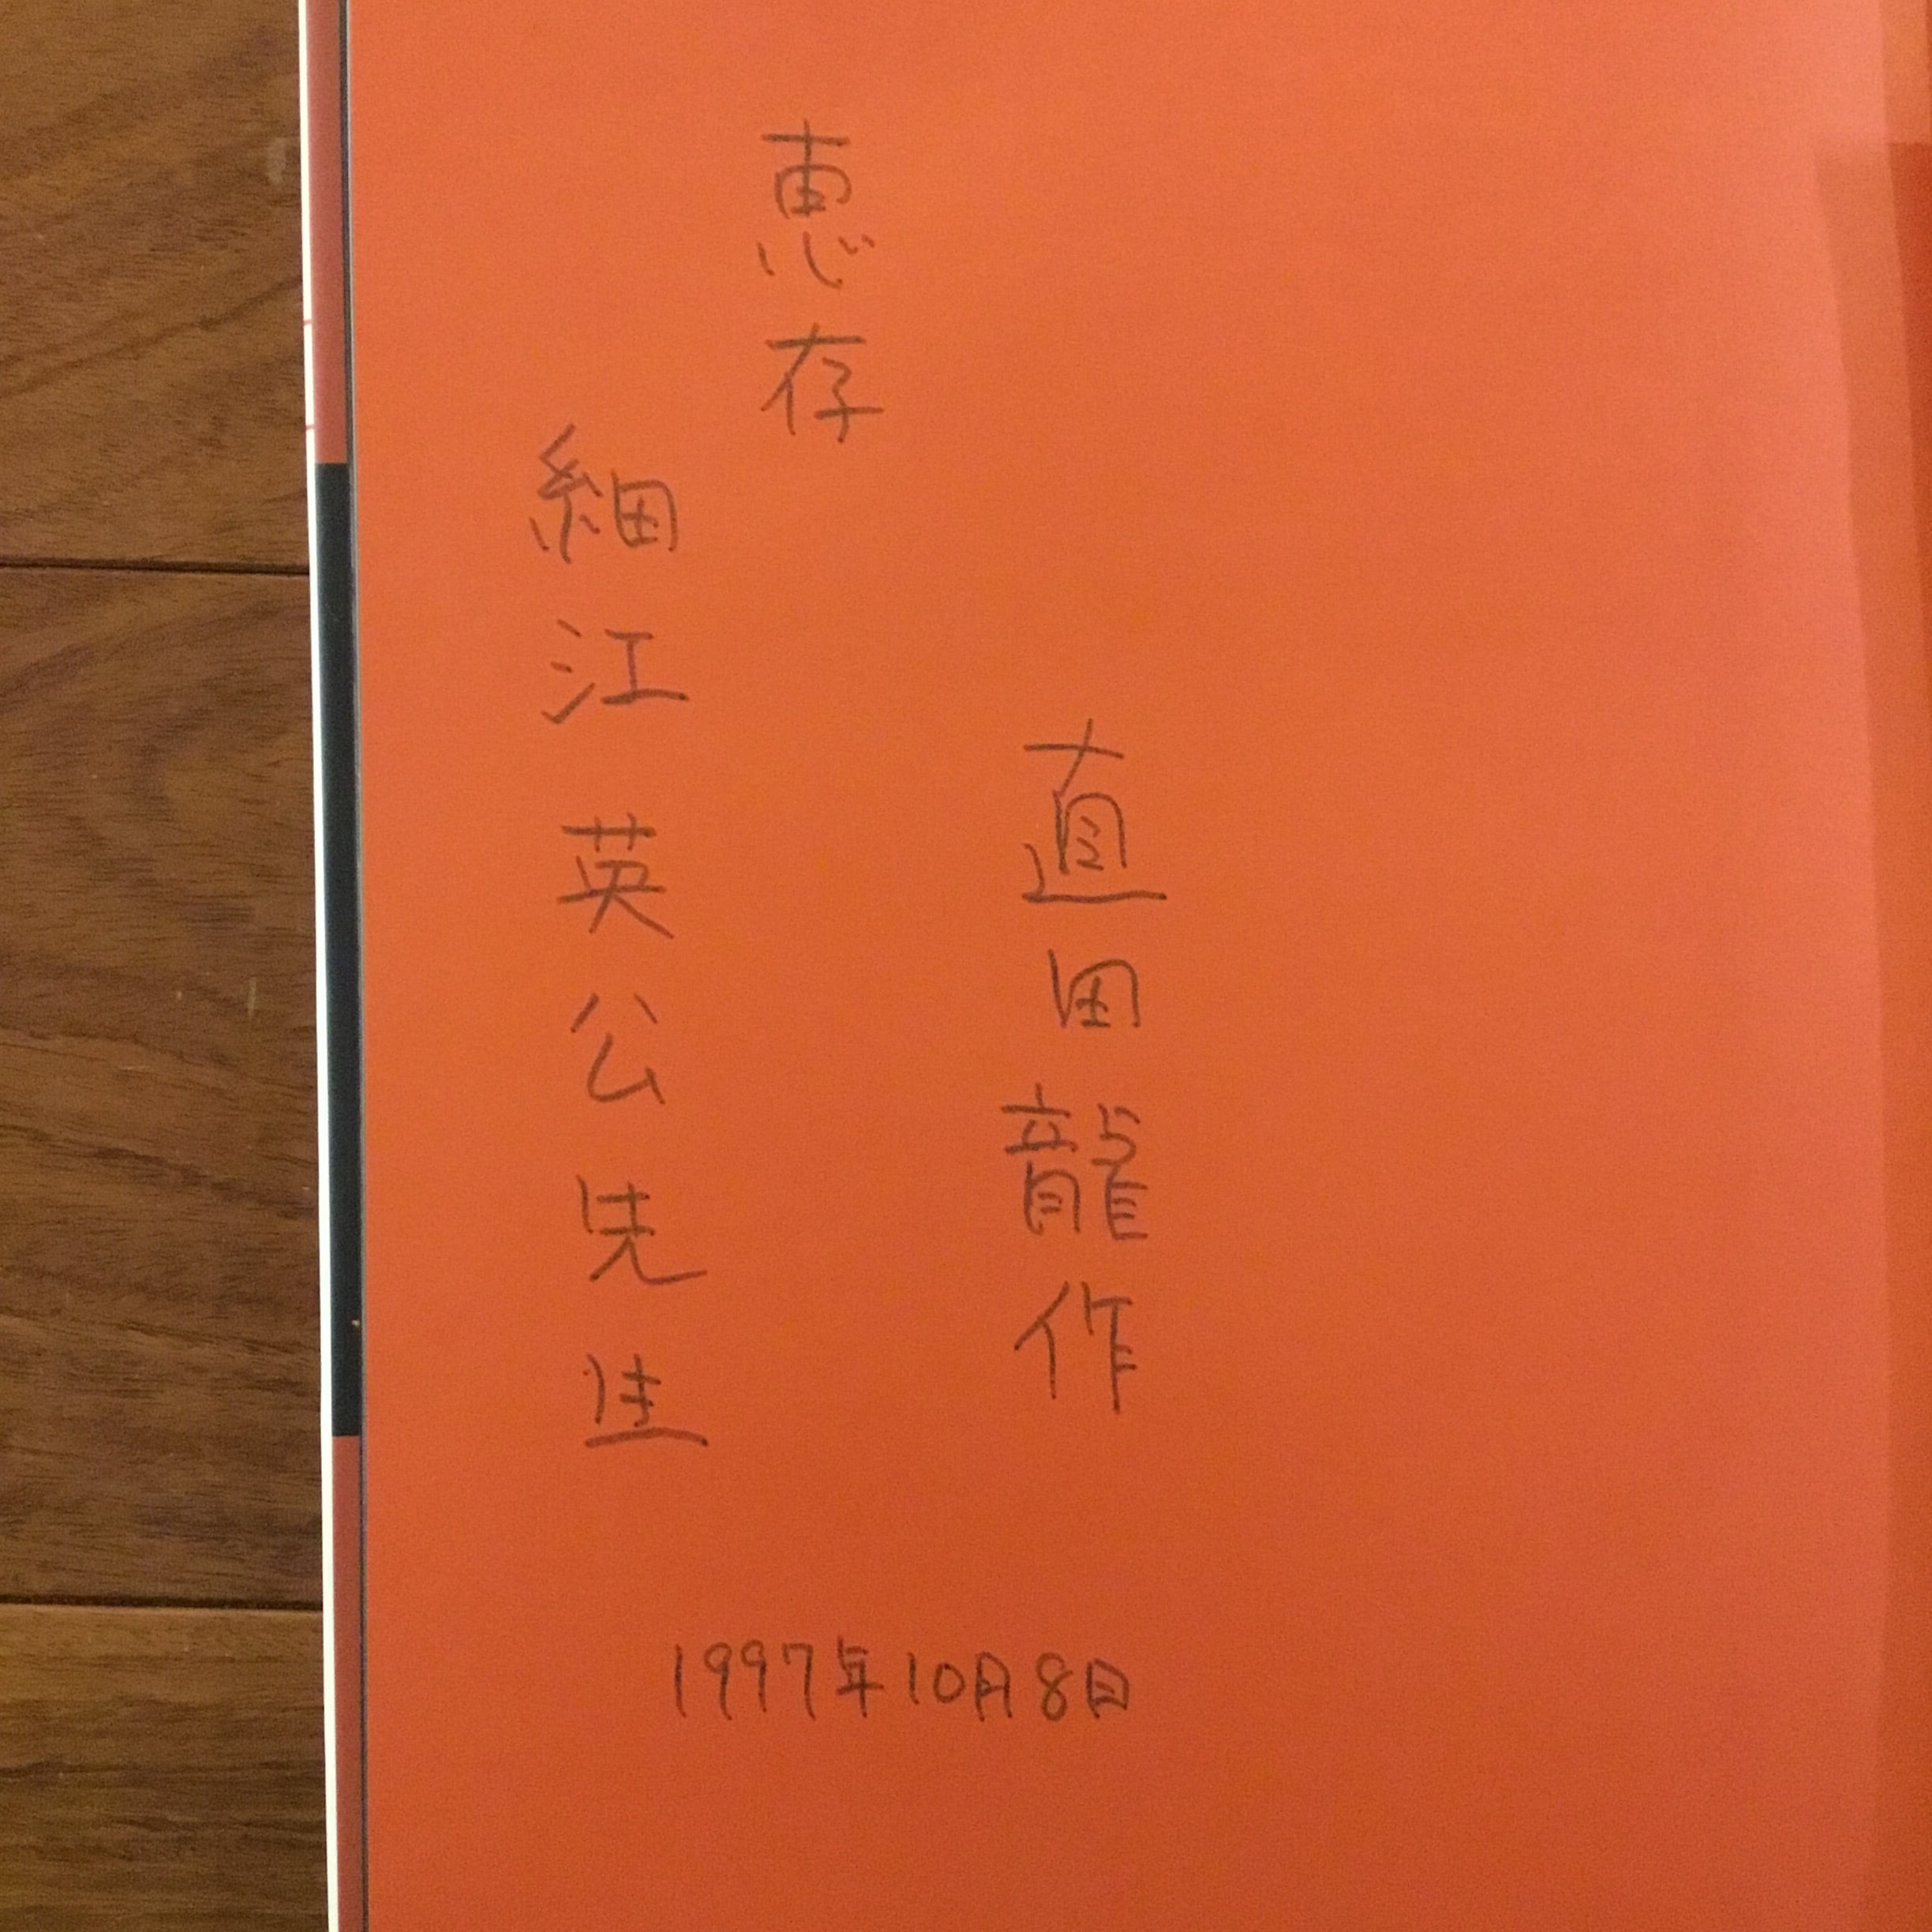 直田龍作
恵存
細江英公先生
1997年10月8日